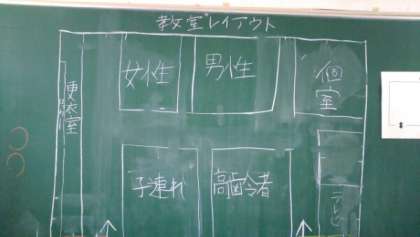 教室レイアウト
女性
男性
個室
更衣室
子連れ
高齢者
テレビ